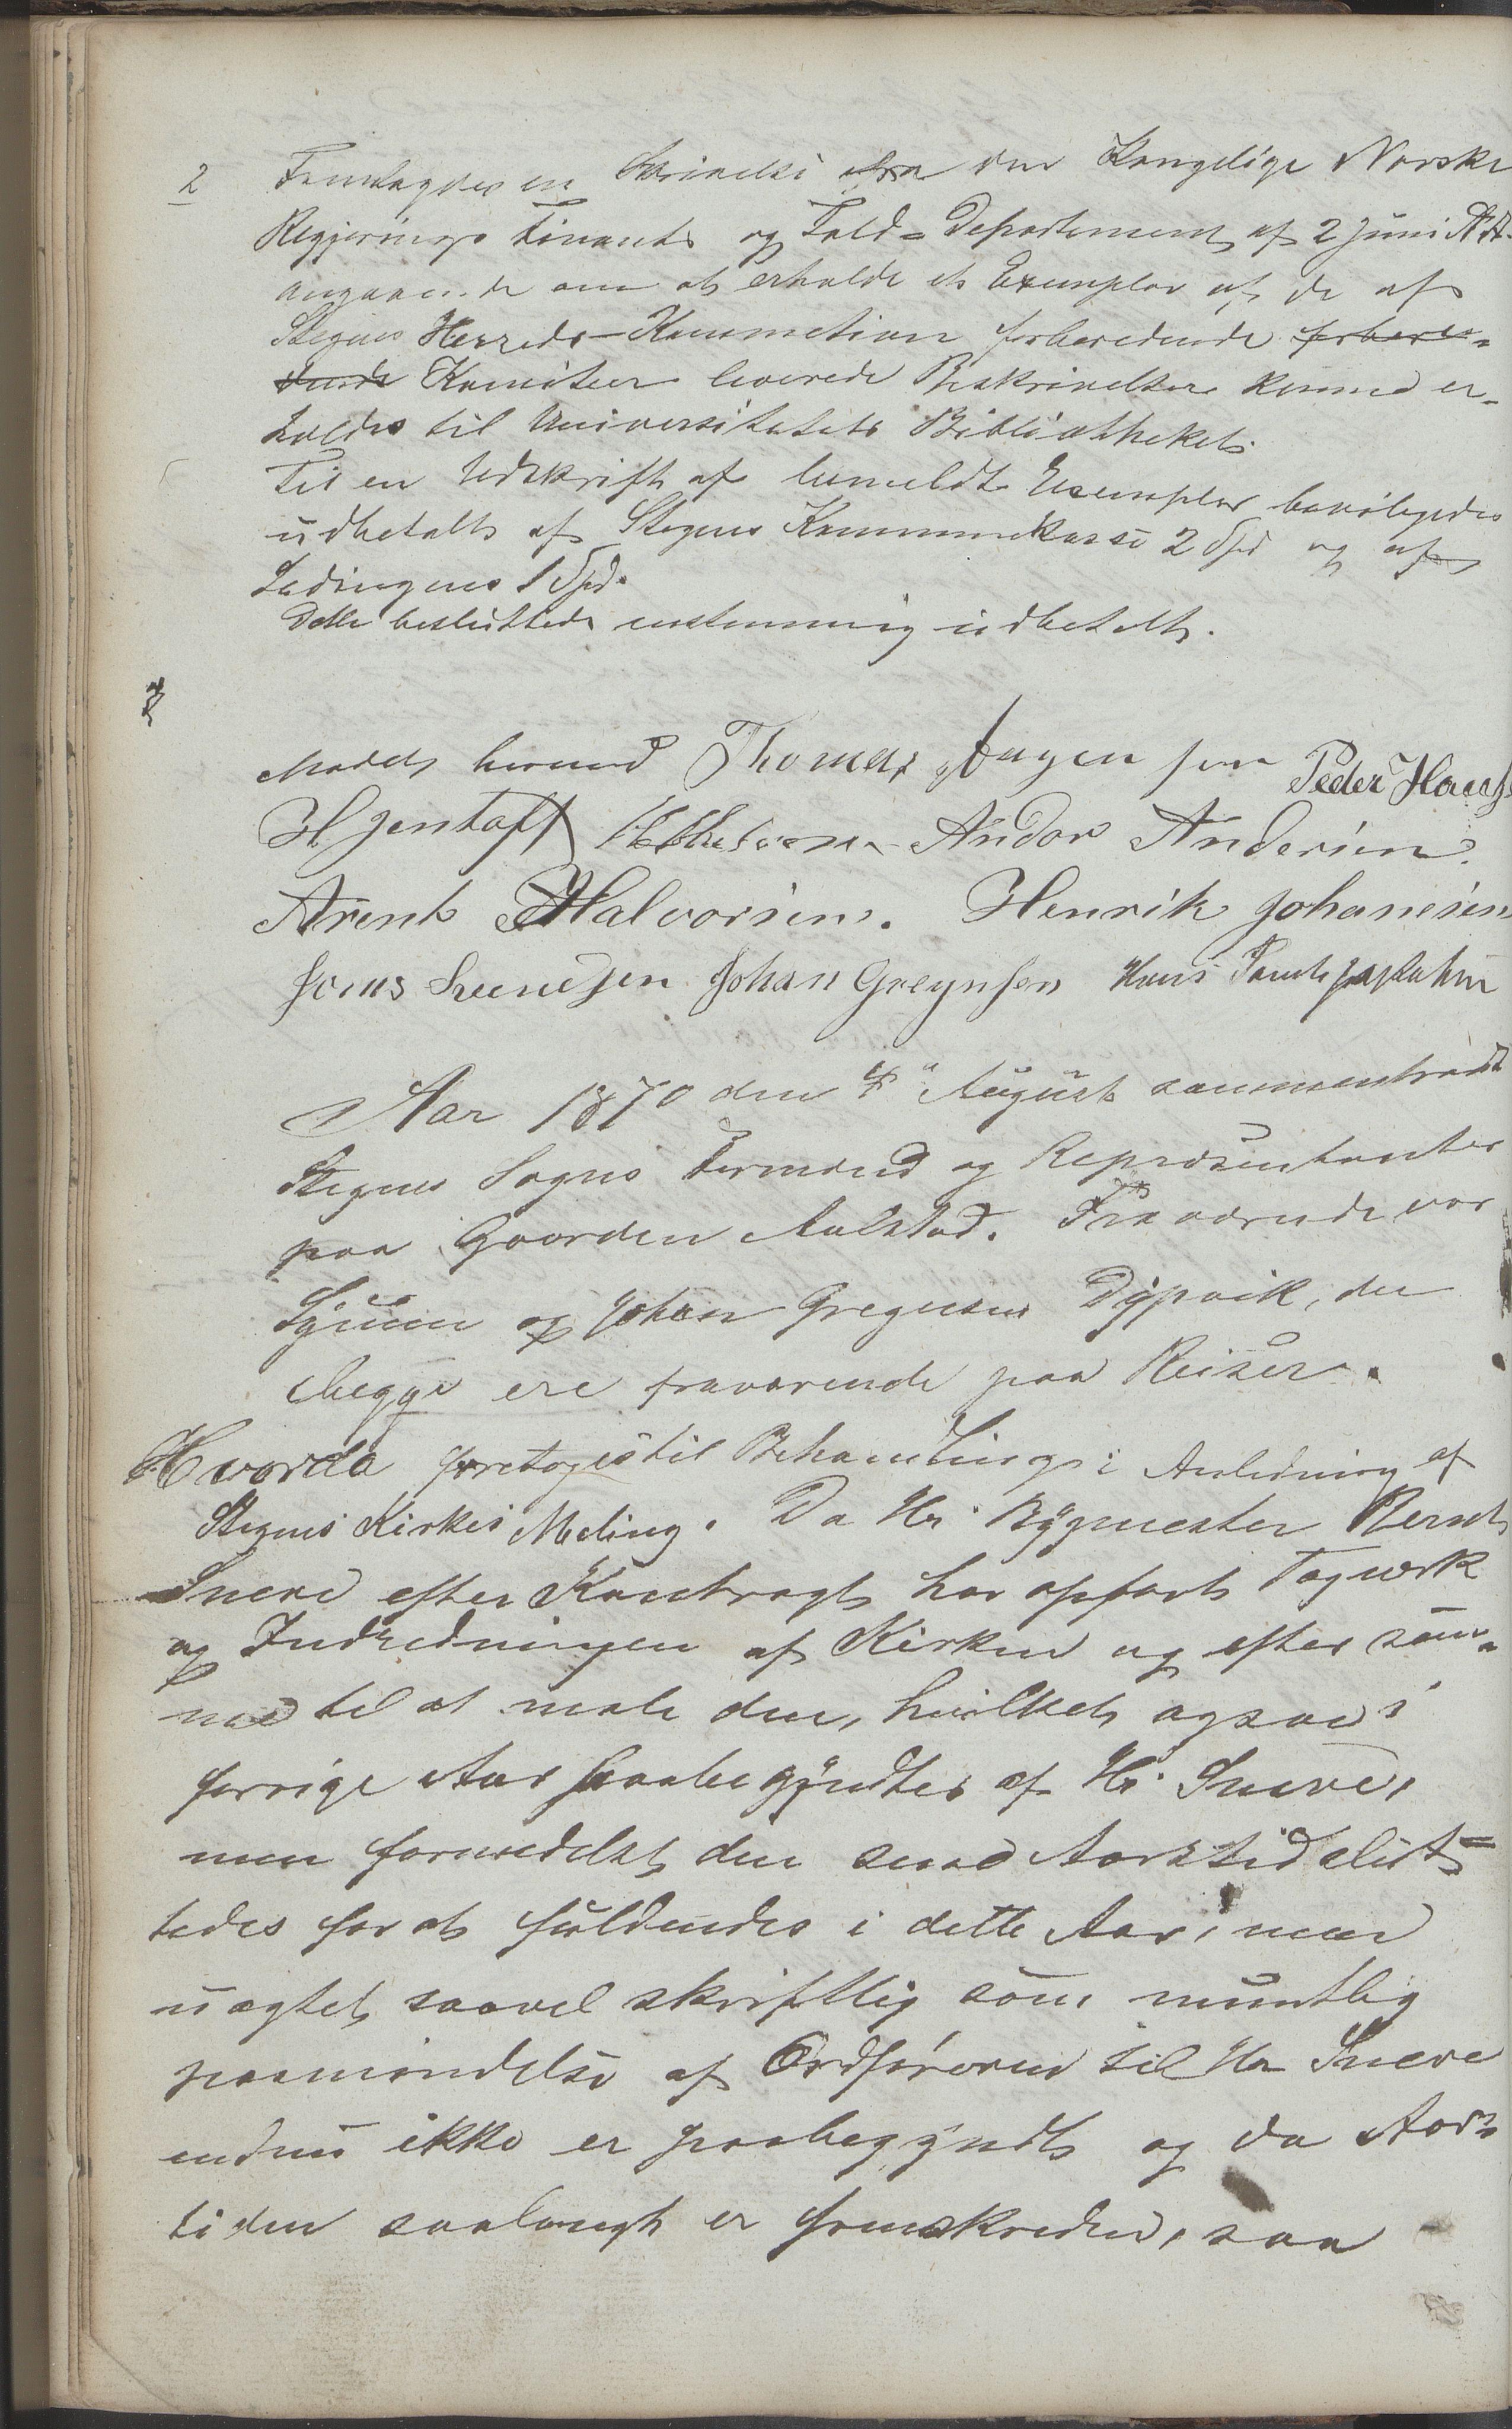 2 Fremlagdes en Skrivelse fra den Kongelige Norske
Regjerings Finants og Told-Departement af 2 Juni d. A.
angaaende om at erholde et Exemplar af de af
Stegens Herreds-Kommetion forberedende forbere-
dende Komiteer leverede Beskrivelser kunne er-
holdes til Universitetets Bibliothekets
Til en Udskrift af bemeldte Exemplar bevilgedes
udbetalt af Stegens Kommunekasse 2 Spd og af
Ledingens 1 Spd.
Dette besluttede enstemmig udbetalt.
Mødet hæved Thomas Aagensen Peder Hans
H Jentoft Andor Andersen.
Arent Halvorsen. Henrik Johanesen
Jonas Svendsen Johan Greynsen Hans
Aar 1870 den 4" August sammentraadt
Stegens Sogns Formænd og Repræsentanter
paa Gaarden Aalstad. Fraværende var
og Johan Gregusen Dypvik, der
begge ere fraværende paa Reiser.
Hvorda foretoges til Behandling i Anledning af
Stegens Kirkes Maling. Da Hr. Bygmester Bernt
Sneve efter Kontragt har opført Tagverk
og Indredningen af Kirken og efter sam-
me til at male den, hvilket ogsaa i
forrige Aar paabegyndtes af Hr. Sneve,
men formedelst den sene Aarstid slut-
tedes for at fuldendes i dette Aar, men
uagtet saavel skriftlig som muntlig
paamindelse af Ordføreren til Hr Sneve
endnu ikke er paabegyndt og da Aars-
tiden saalangt er fremskreden, saa